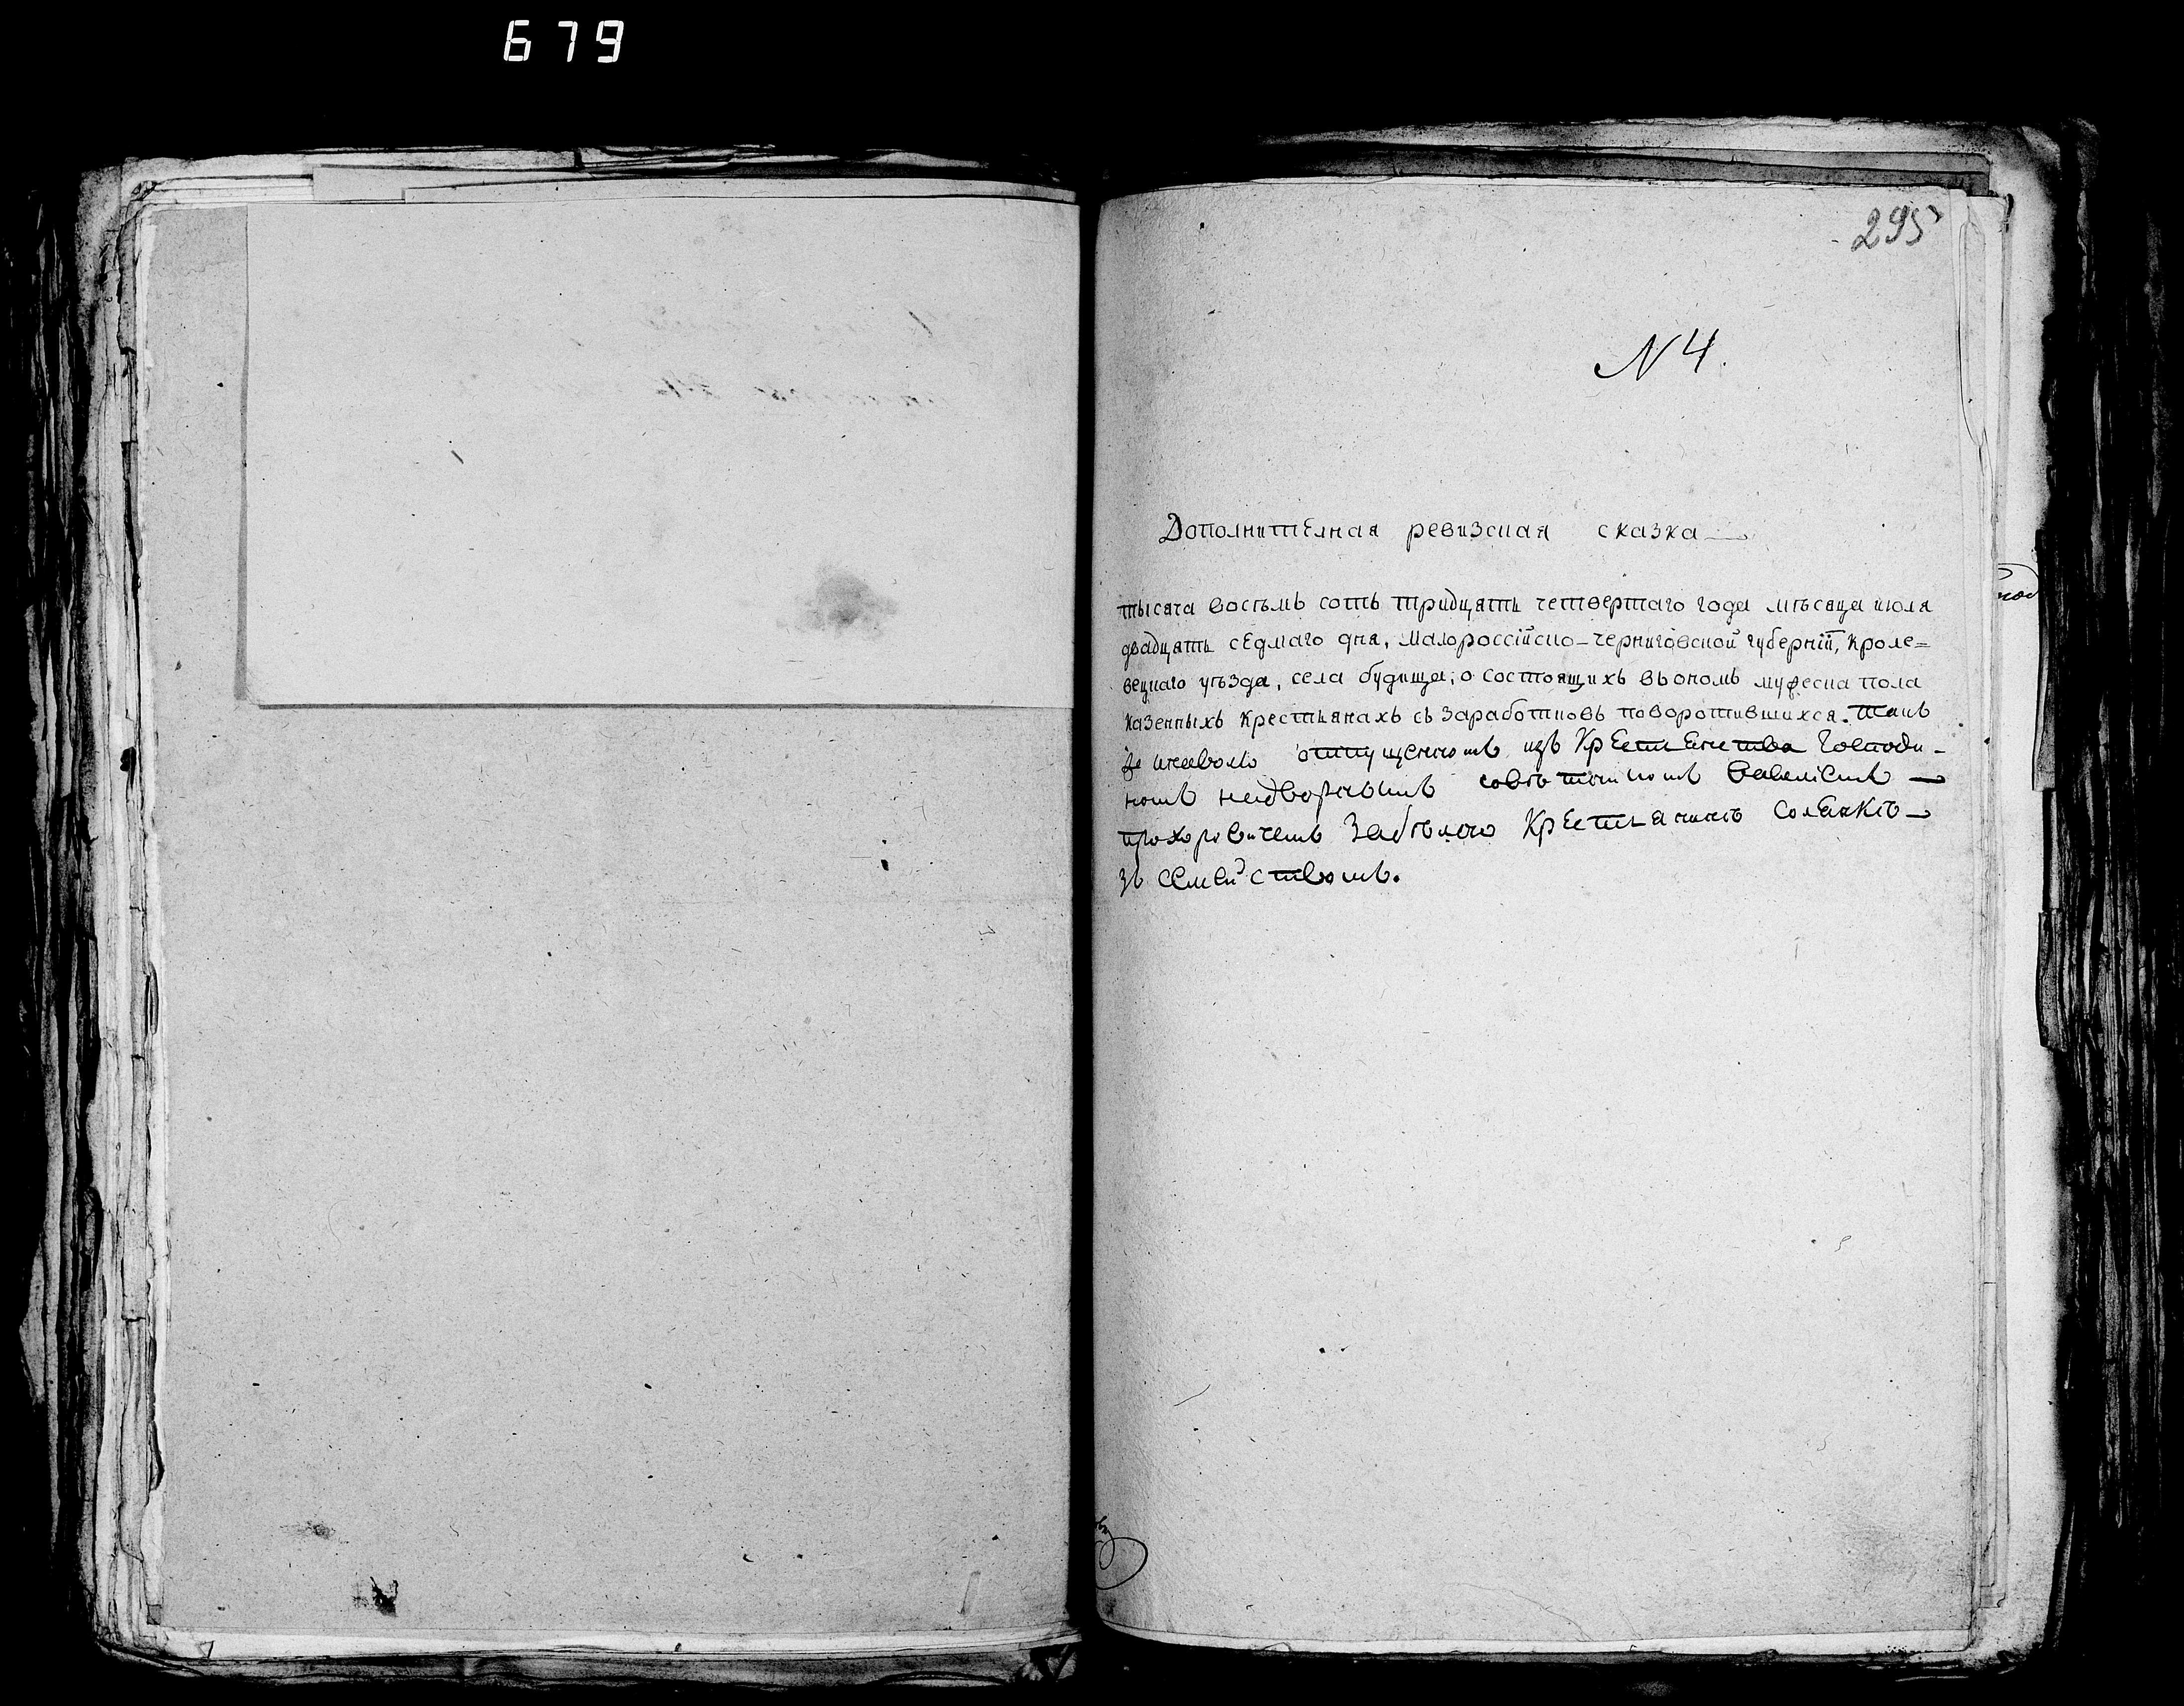 679
295
N 4.
Дополнителная ревизская сказка
тысяча восѣмь сотъ тридцать четвертаго года мѣсяца июля
двадцать седмаго дня, малороссійско-черниговской губерніи, кроле=
вецкаго уѣзда, села будища; о состоящихъ въ ономъ мужеска пола
казенныхъ крестьянахъ съ заработковъ поворотившихся. такъ
же отпущенномъ изъ Крестьенства Господи-
номъ надворнымъ совѣтникомъ
прохоровичемъ Забѣлою Крестьянинѣ
зъ семейством.